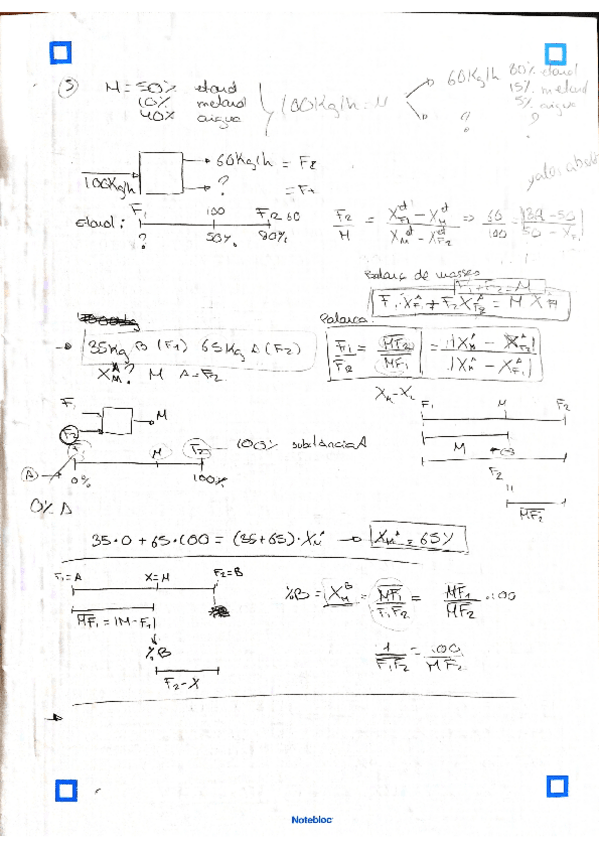 3) M = 50% etanol
10% metanol
40% aigua
100Kg/h = M
60Kg/h 80% etanol
15% metanol
5% aigua
?
?
100Kg/h
60Kg/h = F2
? = F1
Etanol:
F1 100 F2 60
? 50% 80%
F2/M = (X_F1^et - X_M^et)/(X_M^et - X_F2^et) ⇒ 60/100 = |80-50|/|50-X_F1|
Balanç de masses
F1 + F2 = M
F1·X_F1^A + F2 X_F2^A = M X_M^A
Palanca
→ 35Kg B (F1) 65Kg A (F2)
F1/F2 = MF2/MF1 = |X_M^A - X_F2^A|/|X_M^A - X_F1^A|
X_M^A? M A=F2
F1
F2
M
F1 M F2
A
0% 100%
100% substància A
0% A
F1 M F2
M
F2
MF2
35·0 + 65·100 = (35+65)·X_M^A → X_M^A = 65%
F1=A X=M F2=B
MF1 = |M-F1|
%B
F2-X
%B = X_M^B = MF1/F1F2 = MF1/MF2 ·100
1/F1F2 = 100/MF2
Notebloc